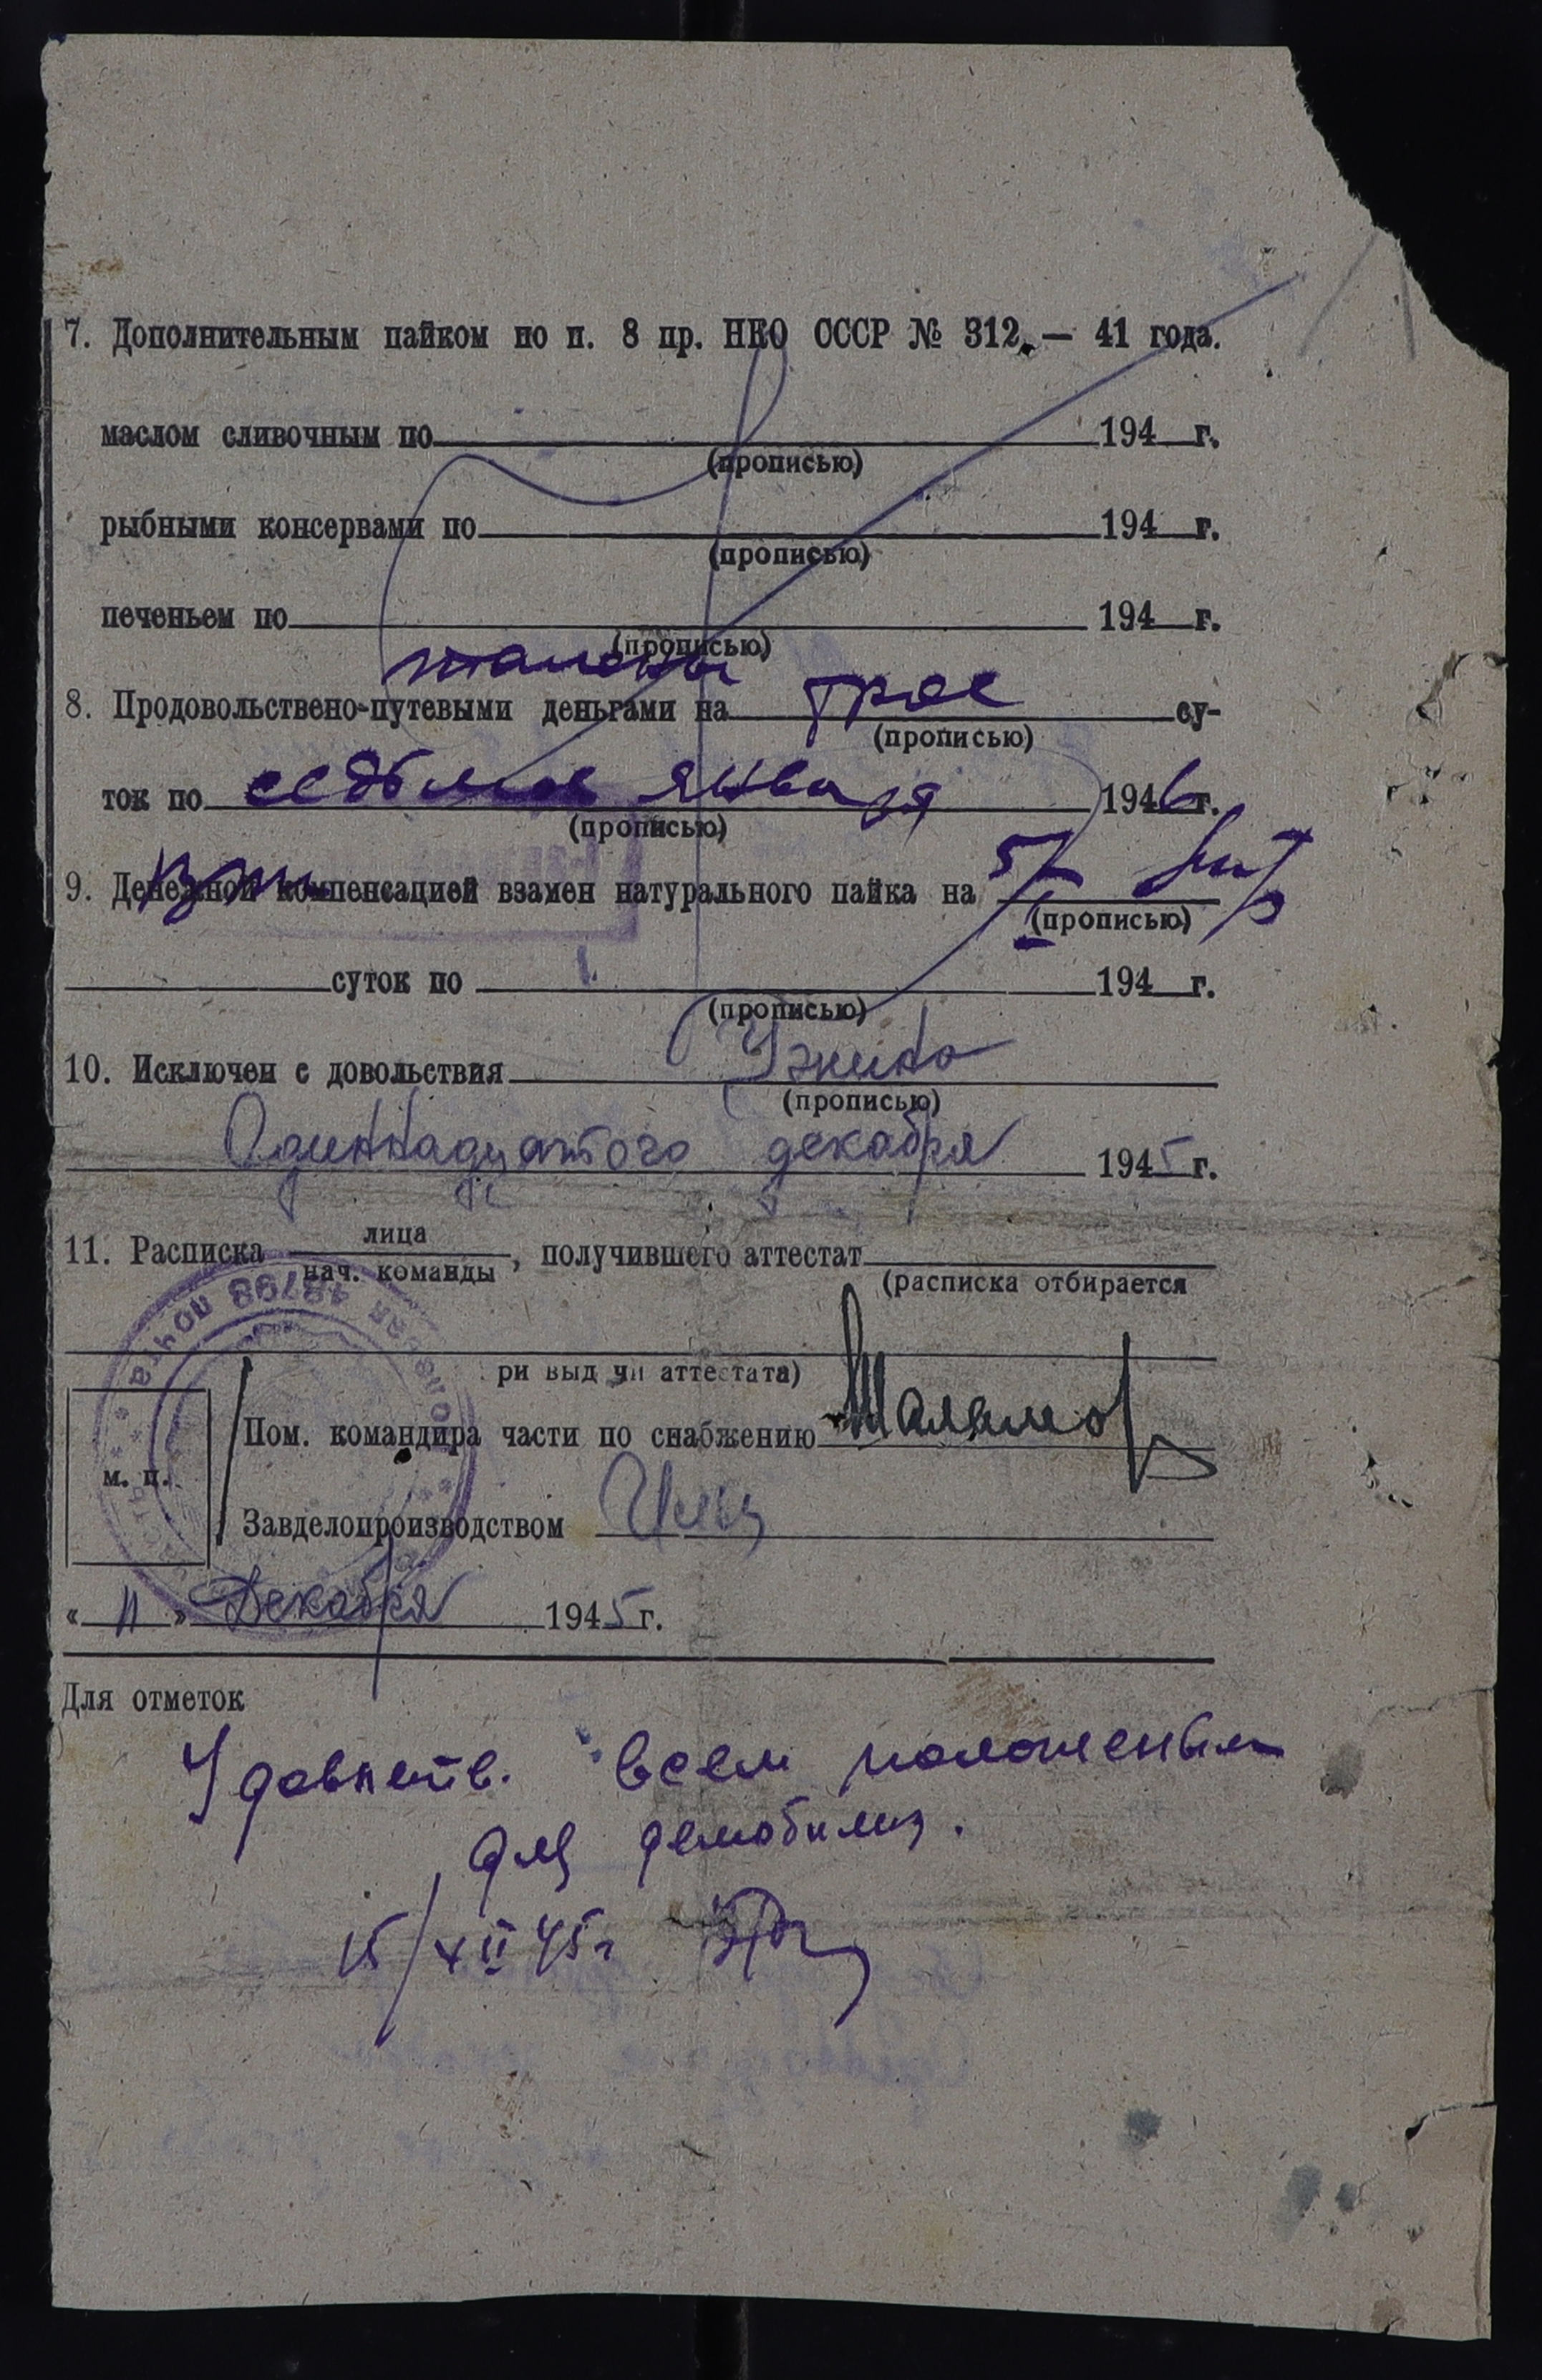 7. Дополнительным пайком по п. 8 пр. НКО СССР № 312 — 41 года.
маслом сливочным по 194 г.
(прописью)
рыбными консервами по 194 г.
(прописью)
печеньем по 194 г.
(прописью)
талоны
8. Продовольствено-путевыми деньгами на трое су-
(прописью)
ток по седьмое января 1946 г.
(прописью)
9. Денежной компенсацией взамен натурального пайка на
(прописью)
суток по 194 г.
(прописью)
10. Исключен с довольствия Ужина
(прописью)
Одиннадцатого декабря 1945 г.
11. Расписка лица
нач. команды
, получившего аттестат
(расписка отбирается
ри выд чи аттестата)
Пом. командира части по снабжению
м. п.
Завделопроизводством
« 11 » Декабря 1945 г.
Для отметок
Удовлетв. всем положеным
для демобилиз.
15/XII 45 г